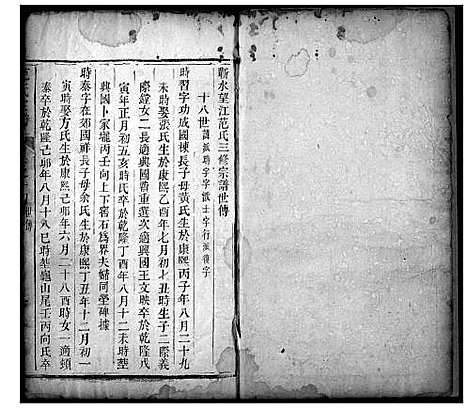 蘄水望江范氏三修宗譜世傳
十八世
時習字功成國棟長子母黃氏生於康熙丙子年八月二十九
未時娶張氏生於康熙乙酉年七月初七丑時生子二際義
際鏜女二長適興國曾重選次適興國王文映卒於乾隆戊
寅年正月初五亥時氏卒於乾隆丁酉年八月十二未時塟
興國卜家壠丙壬向上下窖石爲界夫婦同塋碑據
時泰字在郊國祥長子母余氏生於康熙丁丑年十二月初一
寅時娶方氏生於康熙己卯年六月二十八酉時女一適賴
泰卒於乾隆己卯年八月十八巳時塟龜山尾壬丙向氏卒